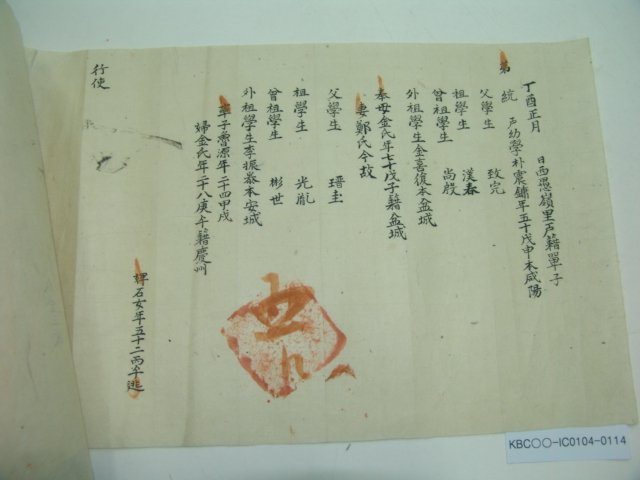 丁酉正月 日西愚嶺里戶籍單子
第 統 戶幼學朴震鏞年五十戊申本咸陽
父學生 致完
祖學生 漢春
曾祖學生 尚殷
外祖學生金喜復本盆城
奉母金氏年七十戊子籍盆城
妻鄭氏今故
父學生 瑨圭
祖學生 光胤
曾祖學生 彬世
外祖學生李振 本安城
率子 年二十四甲戌
婦金氏年二十八庚午籍慶州
婢石女年五十二丙午逃
行使
KBC○○-IC0104-0114